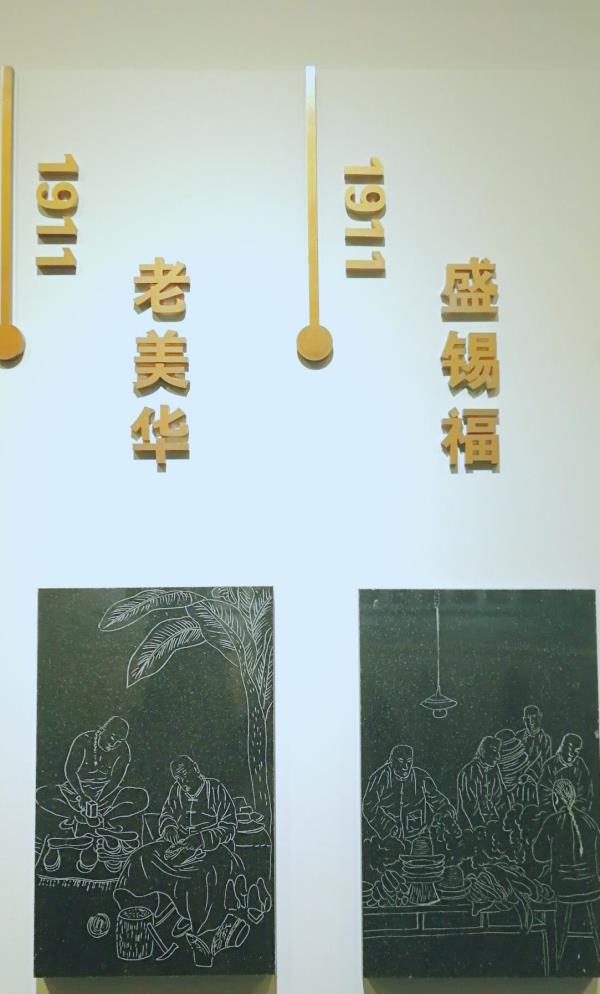 1911
老美华
1911
盛锡福